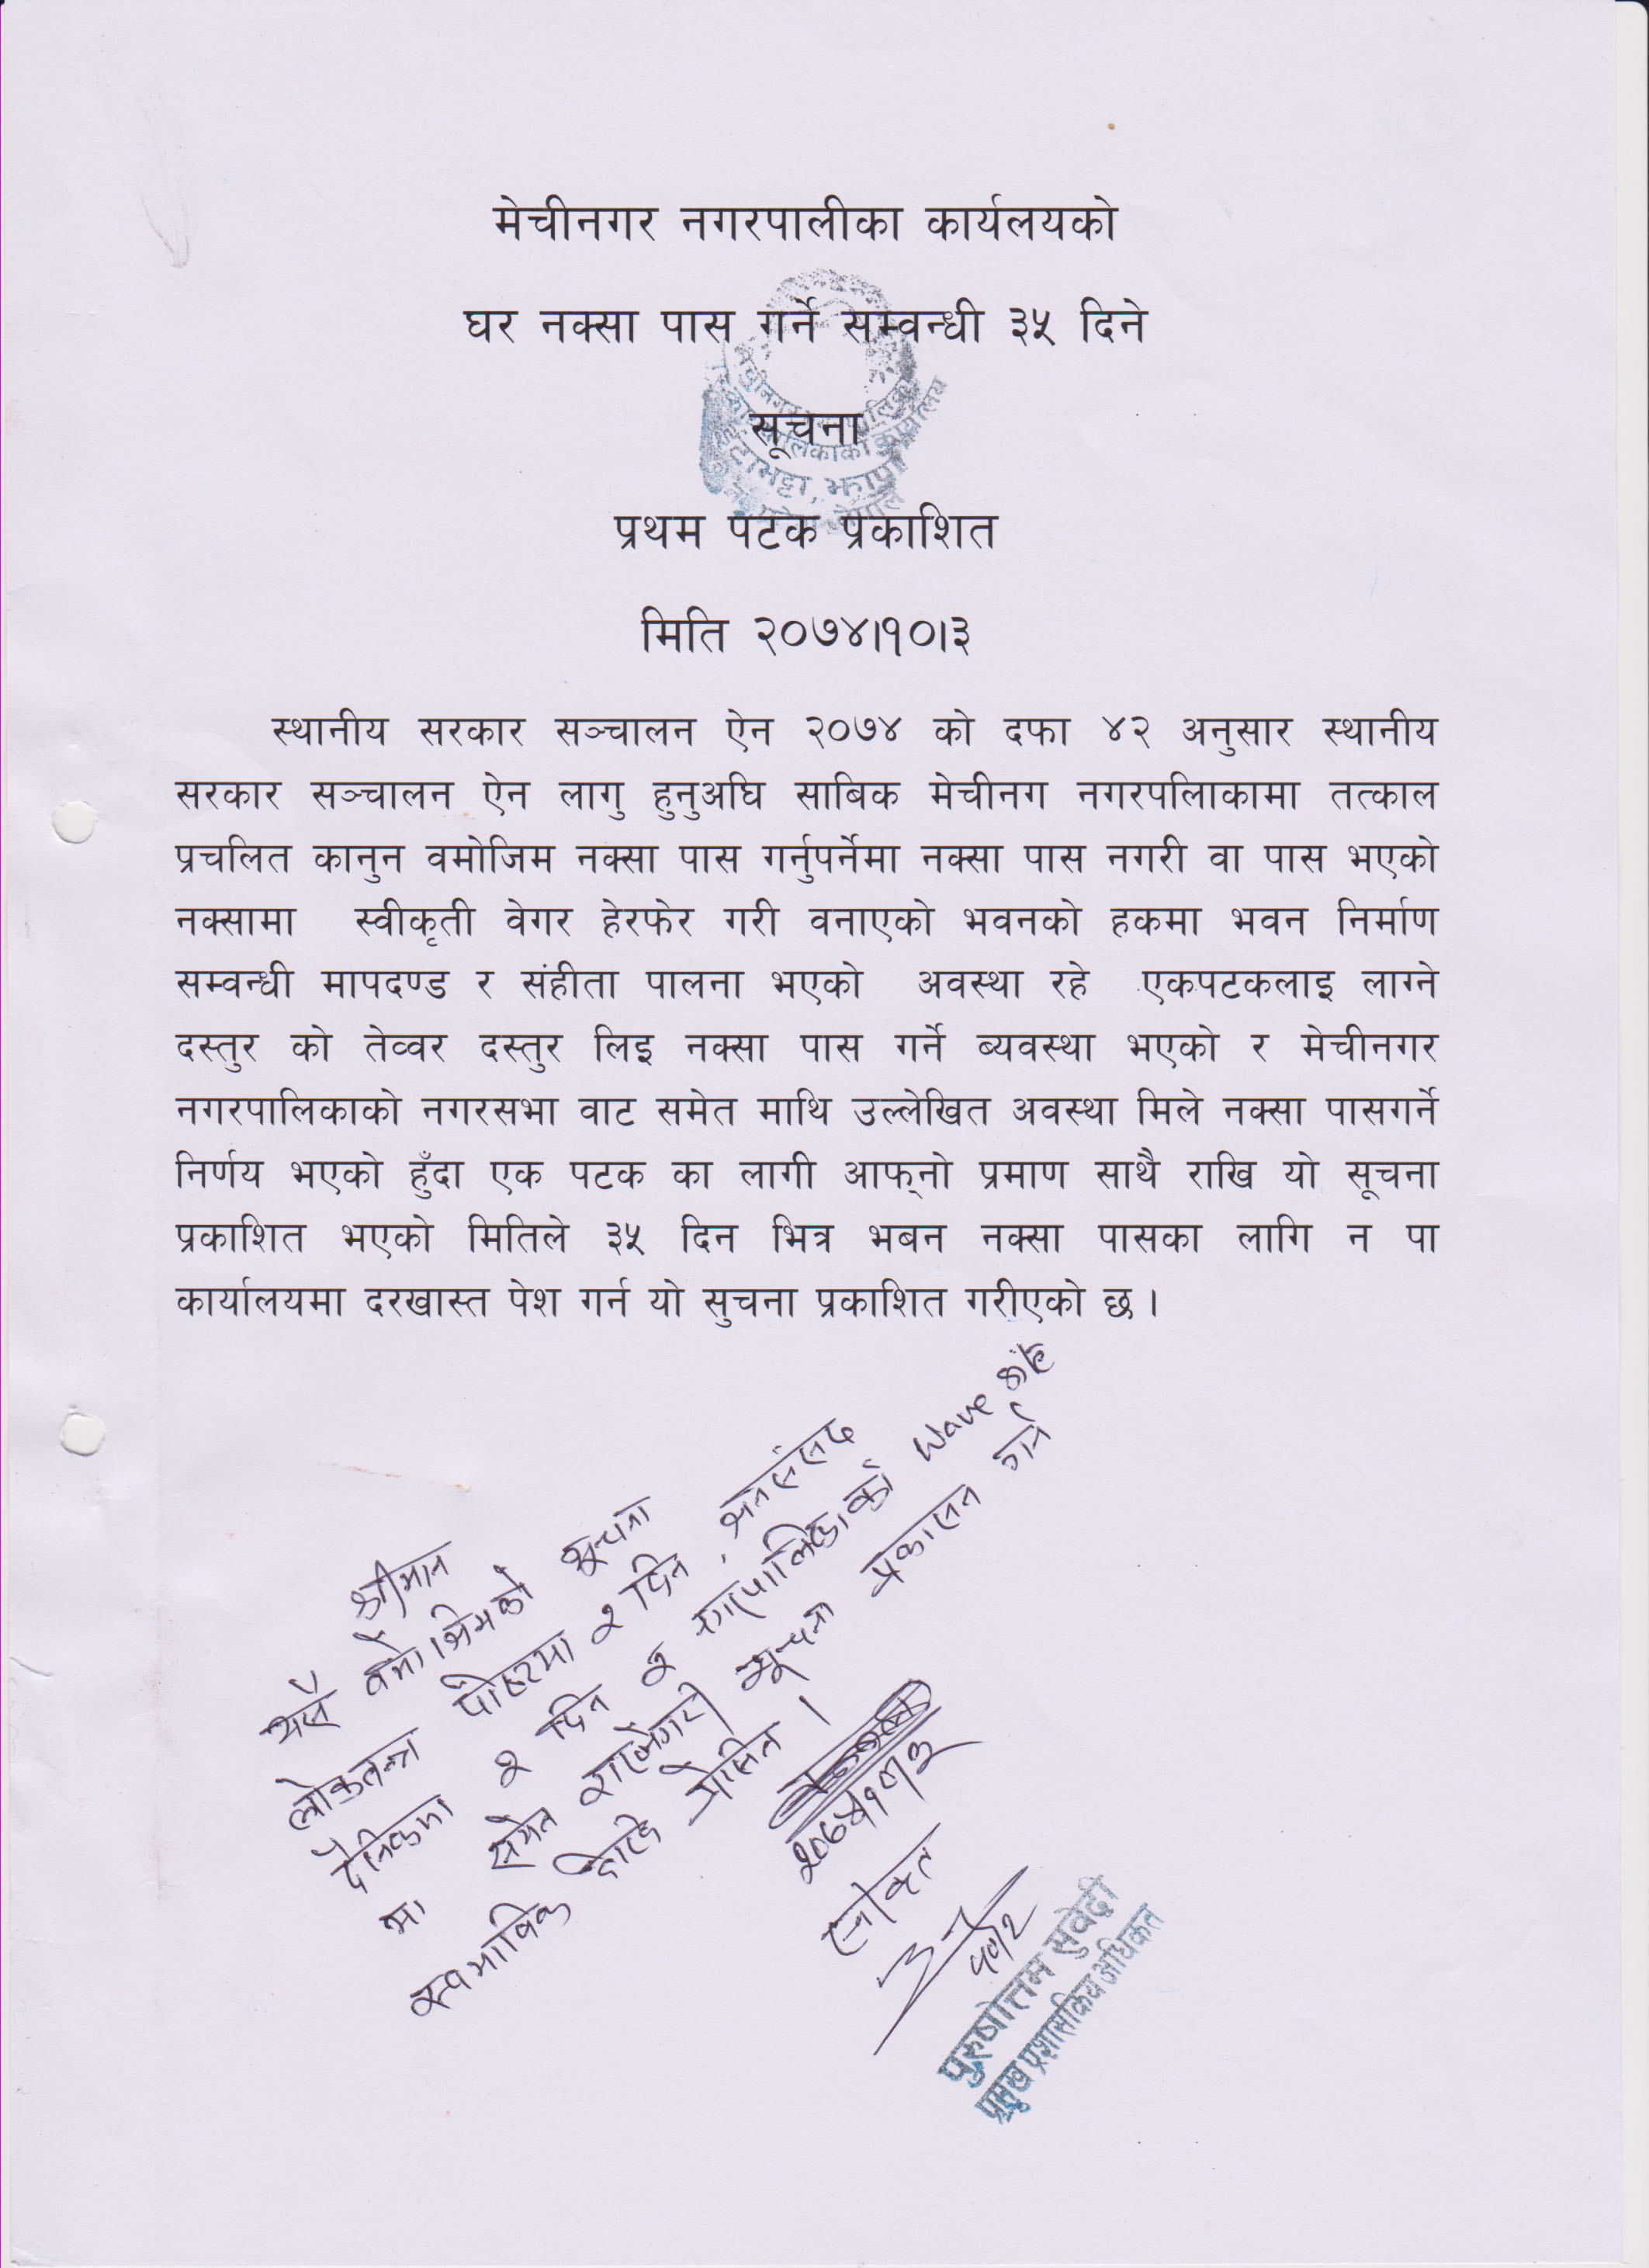 मेचीनगर नगरपालीका कार्यलयको
घर नक्सा पास गर्ने सम्वन्धी ३५ दिने
सूचना
प्रथम पटक प्रकाशित
मिति २०७४।१०।३
स्थानीय सरकार सञ्चालन ऐन २०७४ को दफा ४२ अनुसार स्थानीय
सरकार सञ्चालन ऐन लागु हुनुअघि साबिक मेचीनग नगरपलिाकामा तत्काल
प्रचलित कानुन वमोजिम नक्सा पास गर्नुपर्नेमा नक्सा पास नगरी वा पास भएको
नक्सामा स्वीकृती वेगर हेरफेर गरी वनाएको भवनको हकमा भवन निर्माण
सम्वन्धी मापदण्ड र संहीता पालना भएको अवस्था रहे एकपटकलाइ लाग्ने
दस्तुर को तेव्वर दस्तुर लिइ नक्सा पास गर्ने ब्यवस्था भएको र मेचीनगर
नगरपालिकाको नगरसभा वाट समेत माथि उल्लेखित अवस्था मिले नक्सा पासगर्ने
निर्णय भएको हुँदा एक पटक का लागी आफ्‌नो प्रमाण साथै राखि यो सूचना
प्रकाशित भएको मितिले ३५ दिन भित्र भबन नक्सा पासका लागि न पा
कार्यालयमा दरखास्त पेश गर्न यो सुचना प्रकाशित गरीएको छ ।
श्रीमान
यसै वमोजिमको सूचना
लोकतन्त्र पोष्टमा २ दिन, जनसंसद
दैनिकमा २ दिन र नगरपालिकाको wave
मा समेत सूचना प्रकाशन गर्न
२०७४।१०।३
पुरुषोत्तम सुवेदी
प्रमुख प्रशासकिय अधिकृत